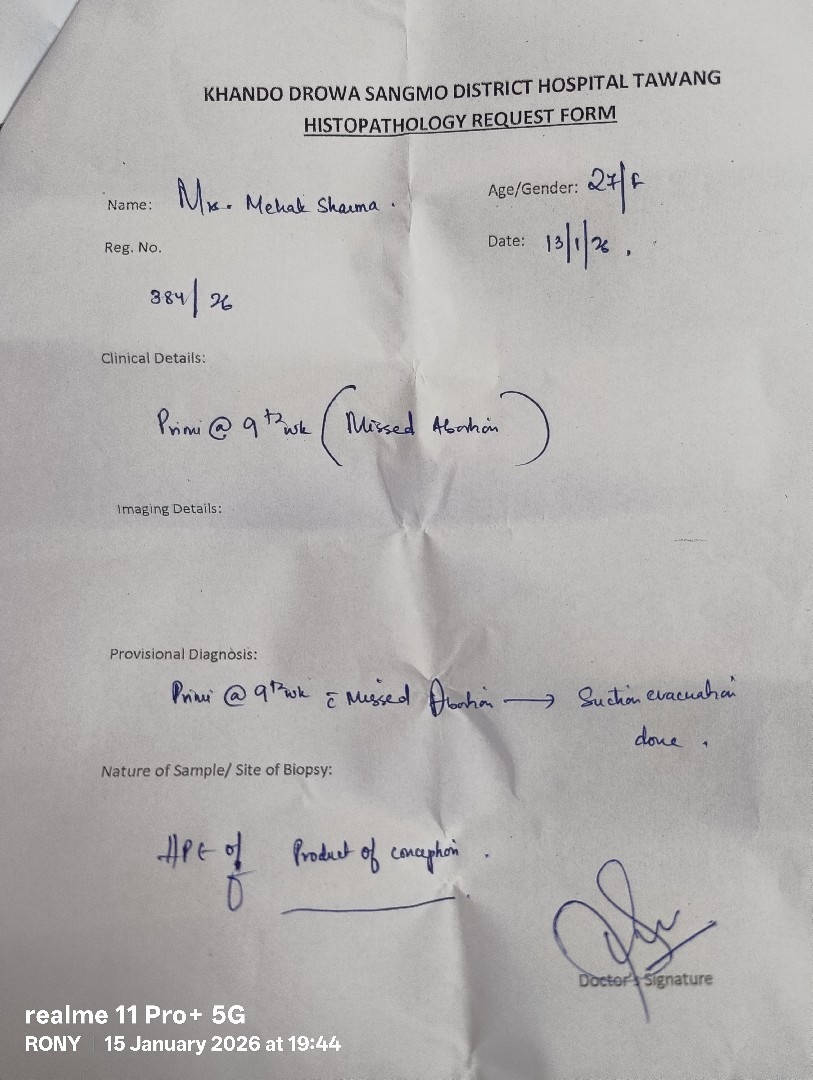 KHANDO DROWA SANGMO DISTRICT HOSPITAL TAWANG
HISTOPATHOLOGY REQUEST FORM
Name: Mrs. Mehak Sharma.
Age/Gender: 27/F
Reg. No.
Date: 13/1/26.
384/26
Clinical Details:
Primi @ 9+2 wk (Missed Abortion)
Imaging Details:
Provisional Diagnosis:
Primi @ 9+2 wk c̄ Missed Abortion → Suction evacuation
done.
Nature of Sample/ Site of Biopsy:
HPE of Product of conception.
Doctor's Signature
realme 11 Pro+ 5G
RONY | 15 January 2026 at 19:44